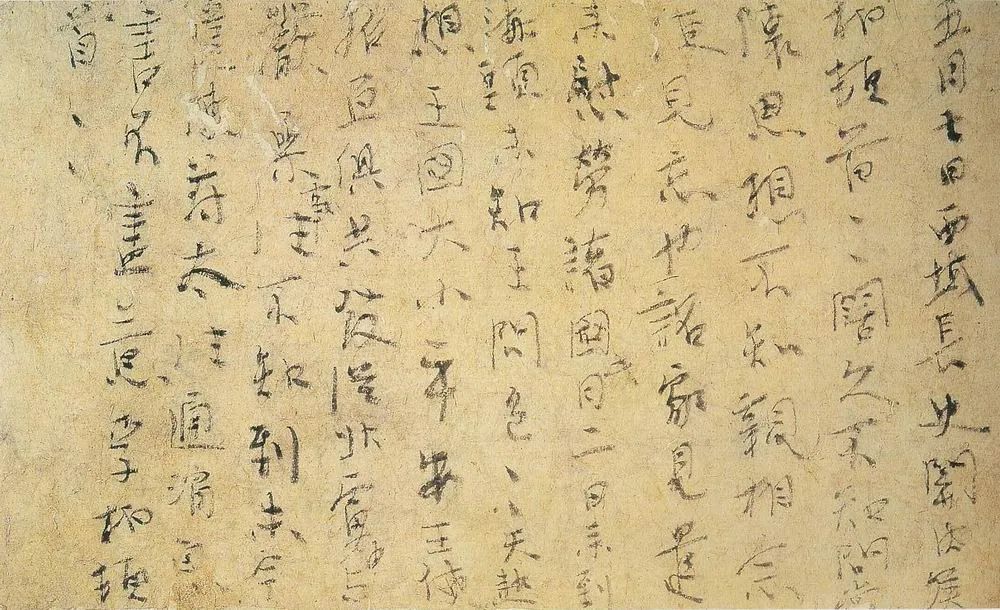 五月七日西域長史關内侯
柏頓首ゝ闊久不知問常
懷思想不知親相念
便見忘也詔家見遣
來慰勞諸國月二日來到
海頭未知王問邑ゝ天熱
想王國大小平安王使
招亘俱共發從北虜中与
嚴參事往不知到未今
遣使苻太往通消息
書不盡意李柏頓
首ゝ